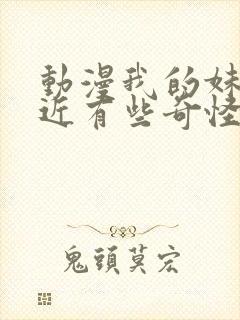 動漫我的妹
近有些奇怪
鬼頭莫宏